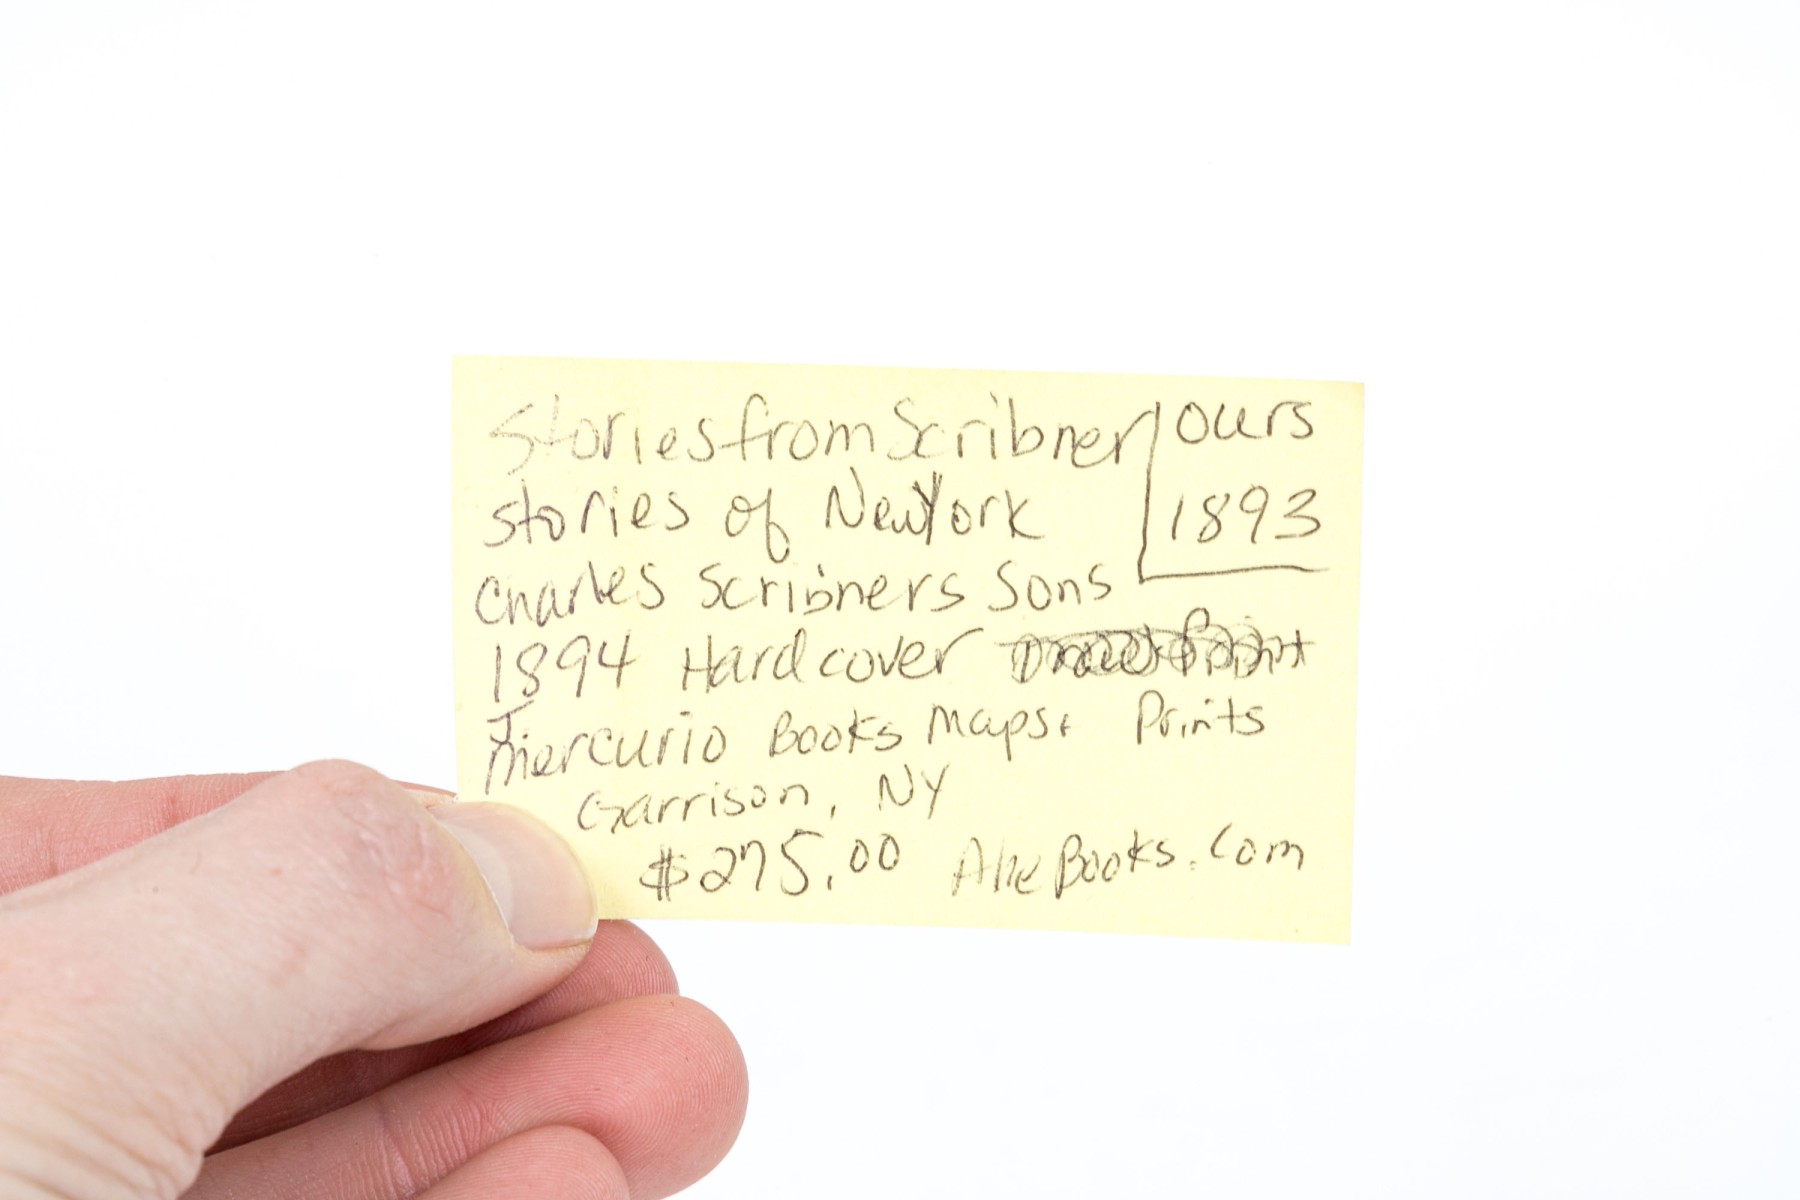 Stories from Scribner
ours
1893
stories of New York
Charles Scribners Sons
1894 Hardcover
J
Mercurio Books Maps + Prints
Garrison, NY
$275.00 AbeBooks.com